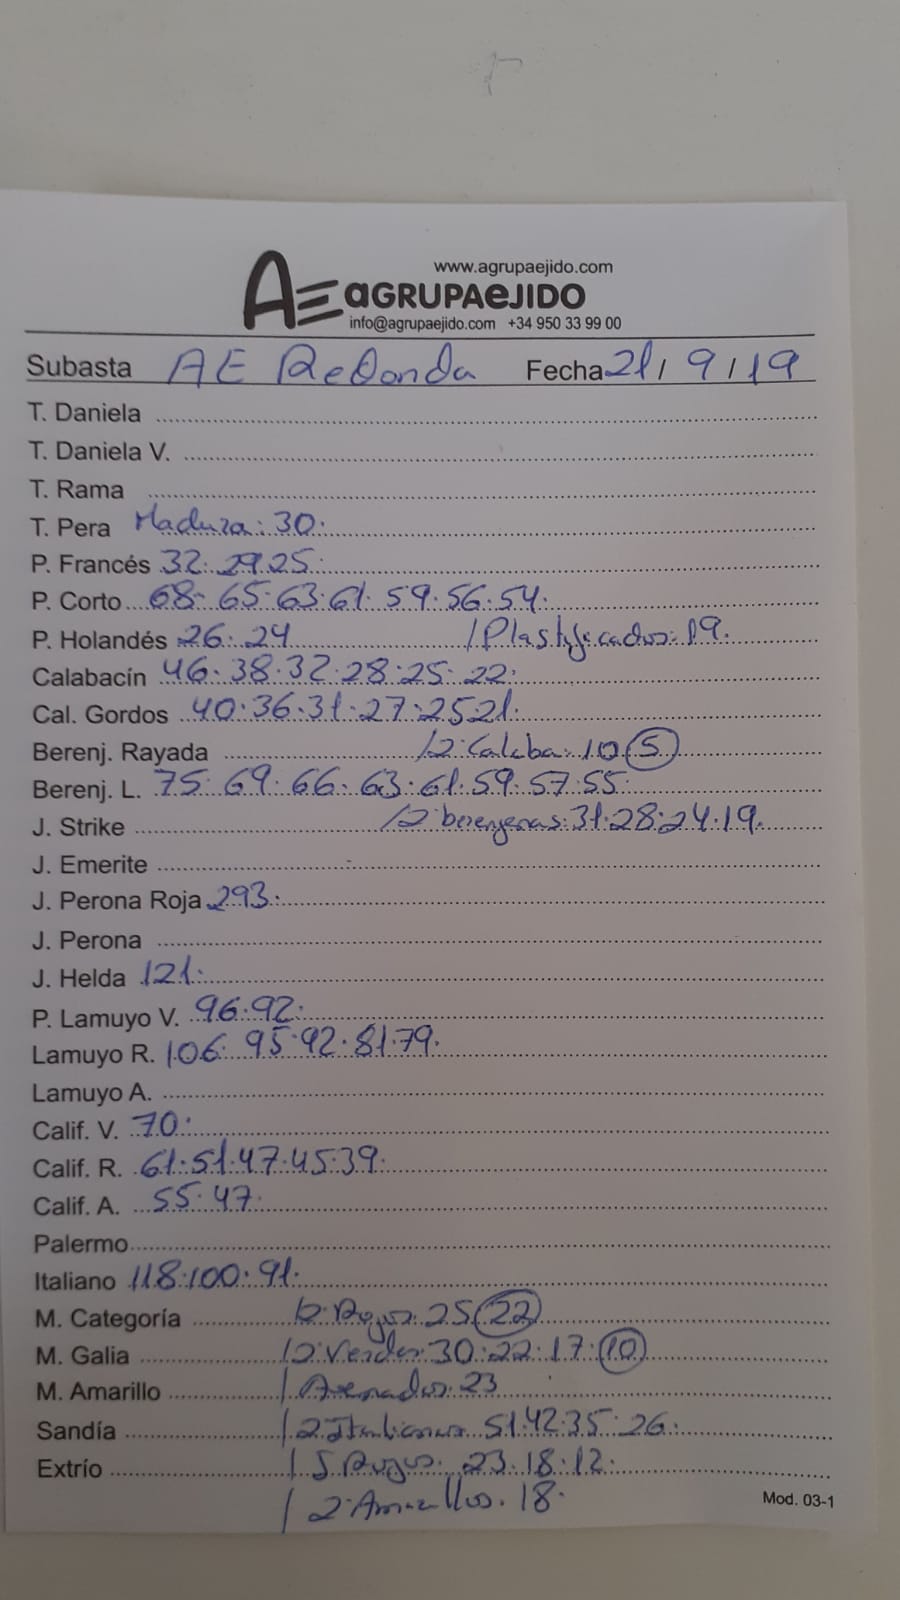 www.agrupaejido.com
AE aGRUPAeJIDO
info@agrupaejido.com +34 950 33 99 00
Subasta AE Redonda Fecha 21/9/19
T. Daniela
T. Daniela V.
T. Rama
T. Pera Madura: 30.
P. Francés 32. 29.25.
P. Corto 68. 65.63.61. 59.56.54.
P. Holandés 26. 24 / Plastificados: 19.
Calabacín 46.38.32.28.25.22.
Cal. Gordos 40.36.31.27.25 21.
Berenj. Rayada /2: Calaba: 10 (5)
Berenj. L. 75.69.66.63.61.59.57.55
J. Strike /2 berenjenas: 31.28.24.19.
J. Emerite
J. Perona Roja 293.
J. Perona
J. Helda 121.
P. Lamuyo V. 96.92.
Lamuyo R. 106. 95.92.81.79.
Lamuyo A.
Calif. V. 70.
Calif. R. 61.51.47.45.39.
Calif. A. 55.47.
Palermo
Italiano 118.100.91.
M. Categoría 2: Rojos: 25 (22)
M. Galia /2: Verdes 30.22.17.(10)
M. Amarillo / Asenados: 23
Sandía / 2 Italianos 51.42.35.26.
Extrío / Rojos. 23.18.12.
/ 2 Amarillos. 18.
Mod. 03-1